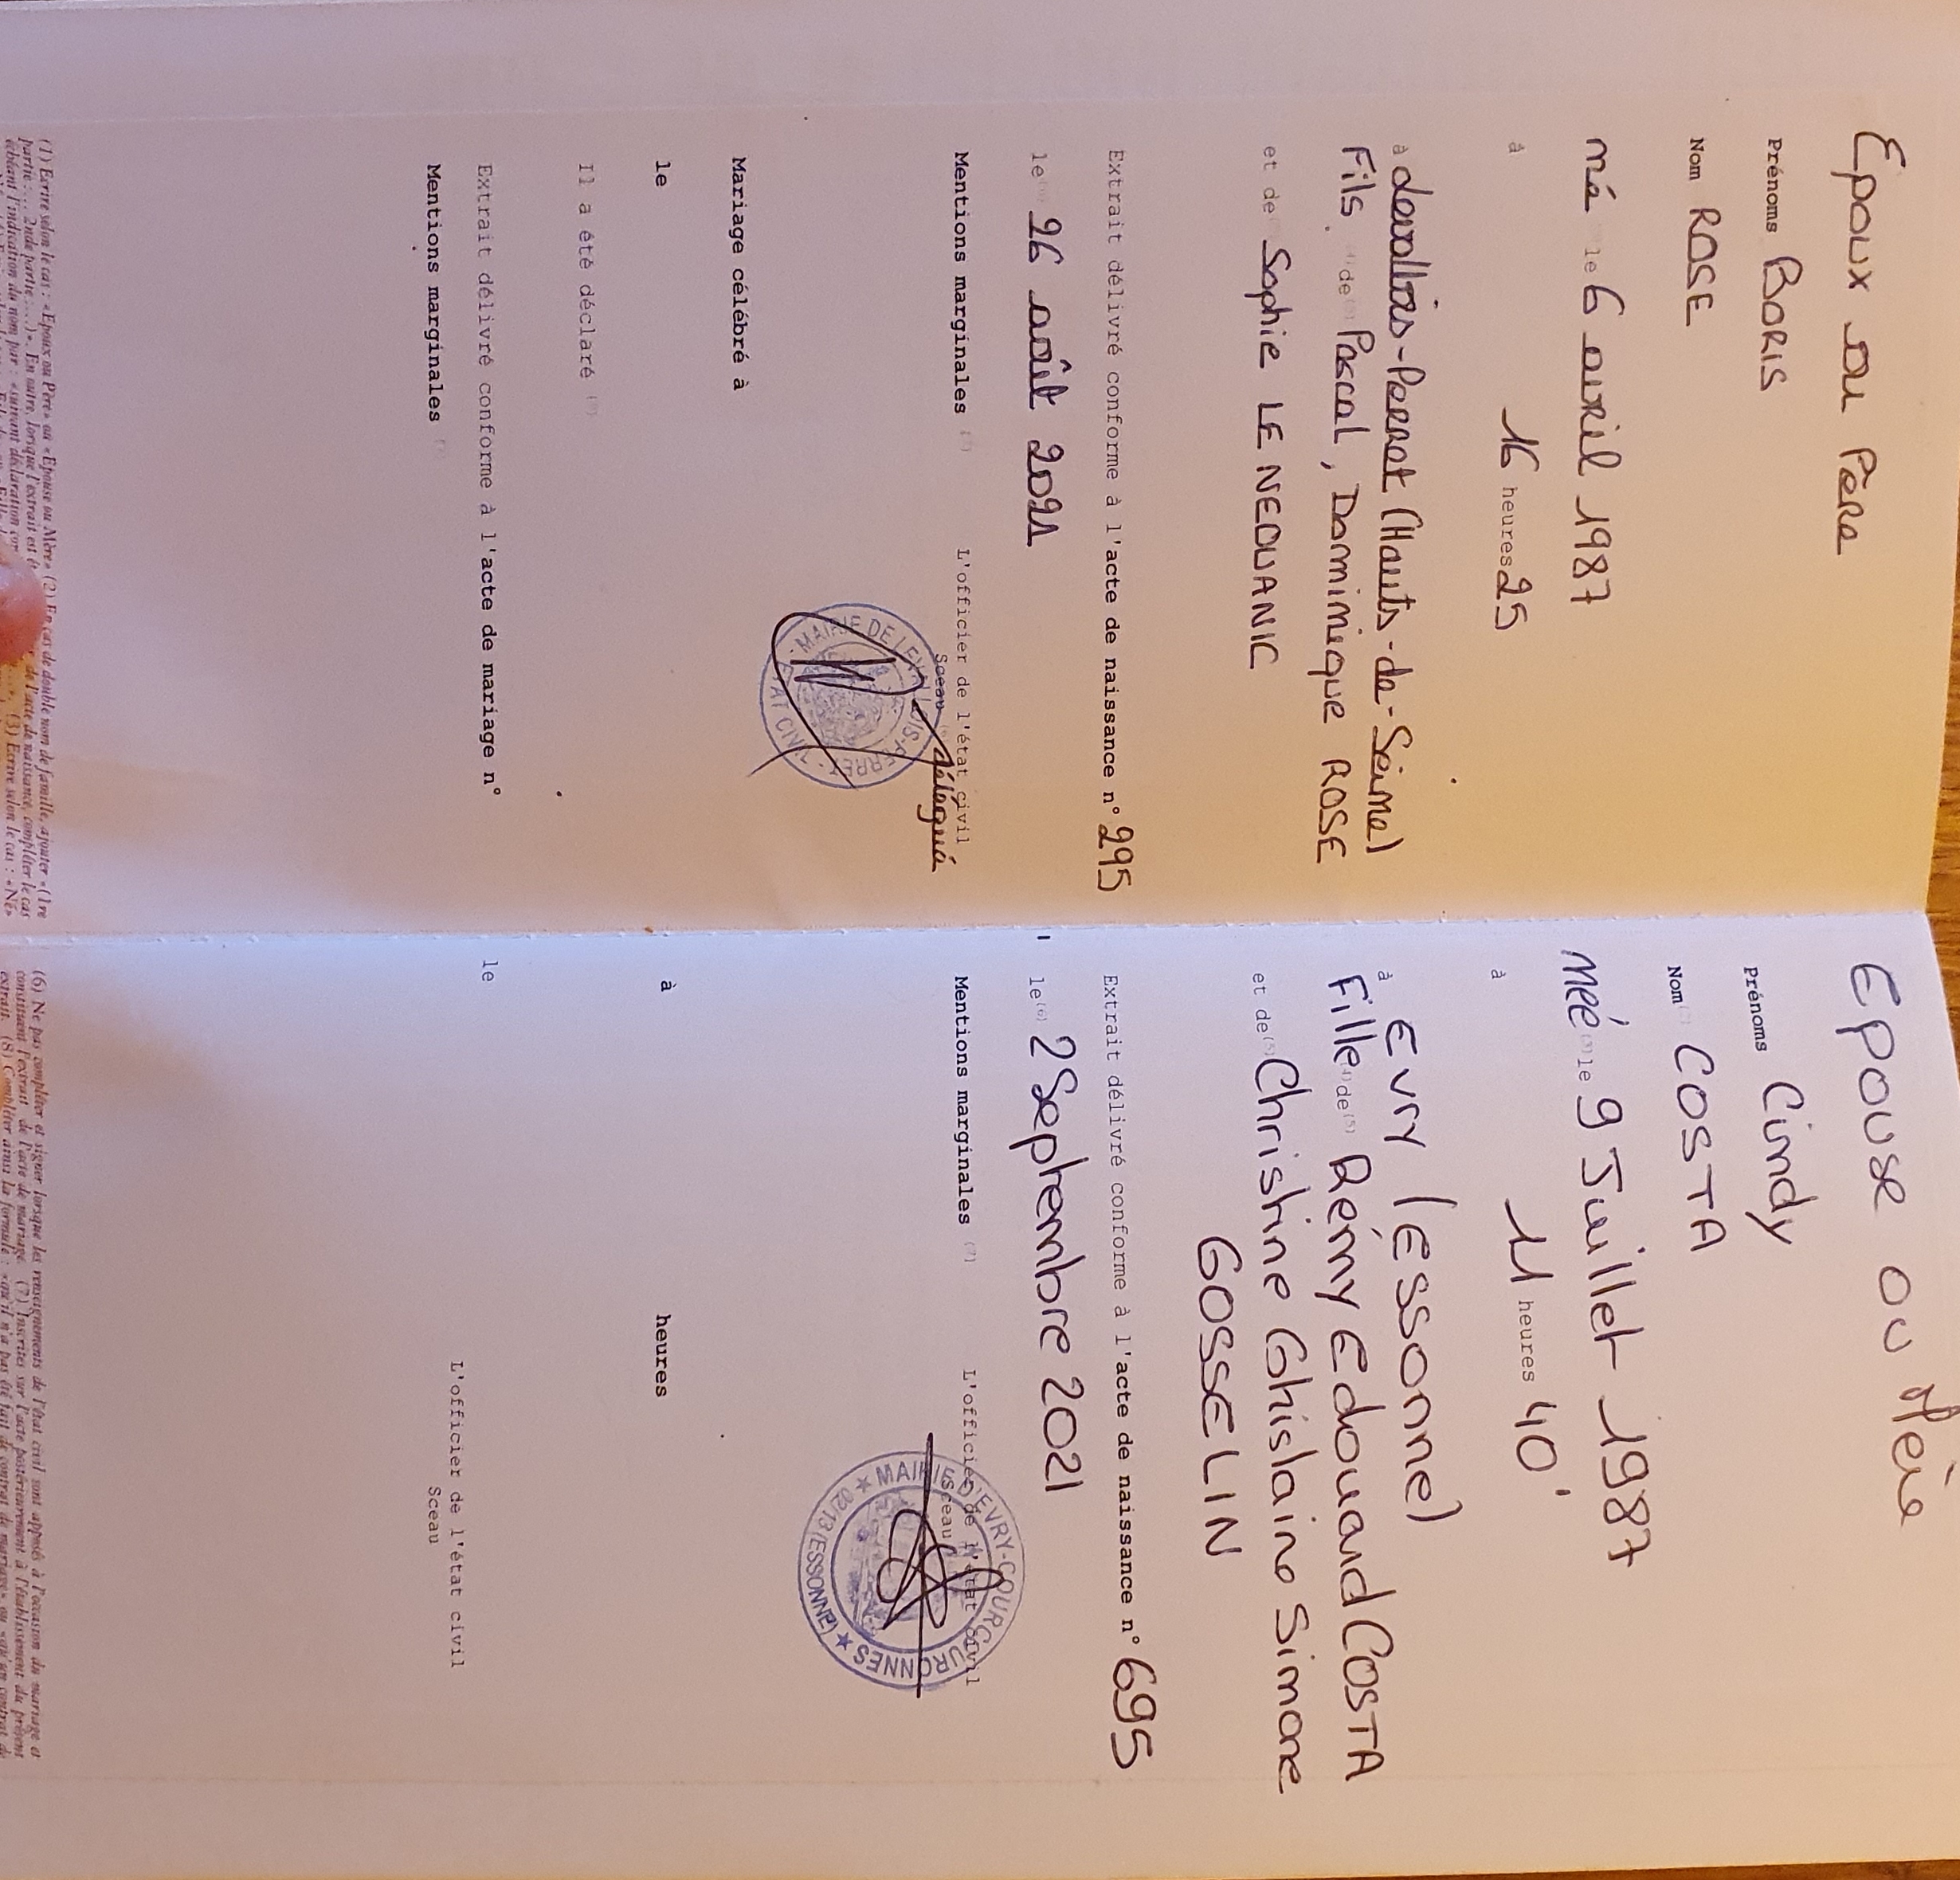 Epoux ou Père
Prénoms BORIS
Nom ROSE
né le 6 avril 1987
à 16 heures 25
à Levallois-Perret (Hauts-de-Seine)
Fils de Pascal, Dominique ROSE
et de Sophie LE NEDUANIC
Extrait délivré conforme à l'acte de naissance n° 295
le 26 août 2021
L'officier de l'état civil
Mentions marginales
Sceau
délégué
MAIRIE DE LEVALLOIS-PERRET
ETAT CIVIL
Mariage célébré à
le
Il a été déclaré
Extrait délivré conforme à l'acte de mariage n°
Mentions marginales
(1) Ecrire selon le cas : «Epoux ou Père» ou «Epouse ou Mère» (2) En cas de double nom de famille, ajouter «(1re
partie : ... 2nde partie ....)». En outre, lorsque l'extrait est
de l'acte de naissance, compléter le cas
échéant l'indication du nom par : «suivant déclaration
(3) Ecrire selon le cas : «Né»
Epouse ou Mère
Prénoms Cindy
Nom COSTA
Née (3) le 9 Juillet 1987
à 11 heures 40'
à EVRY (ESSONNE)
Fille de (5) Rémy Edouard COSTA
et de (5) Christine Ghislaine Simone
GOSSELIN
Extrait délivré conforme à l'acte de naissance n° 695
le (6) 2 Septembre 2021
L'officier de l'état civil
Mentions marginales (7)
Sceau
MAIRIE D'EVRY-COURCOURONNES
(ESSONNE)
à heures
le
L'officier de l'état civil
Sceau
(6) Ne pas compléter et signer lorsque les renseignements de l'état civil sont apposés à l'occasion du mariage et
constituent l'extrait de l'acte de mariage. (7) Inscrites sur l'acte postérieurement à l'établissement du présent
extrait. (8) Compléter ainsi la formule : «qu'il n'a pas été fait de contrat de mariage» ou «qu'un contrat de